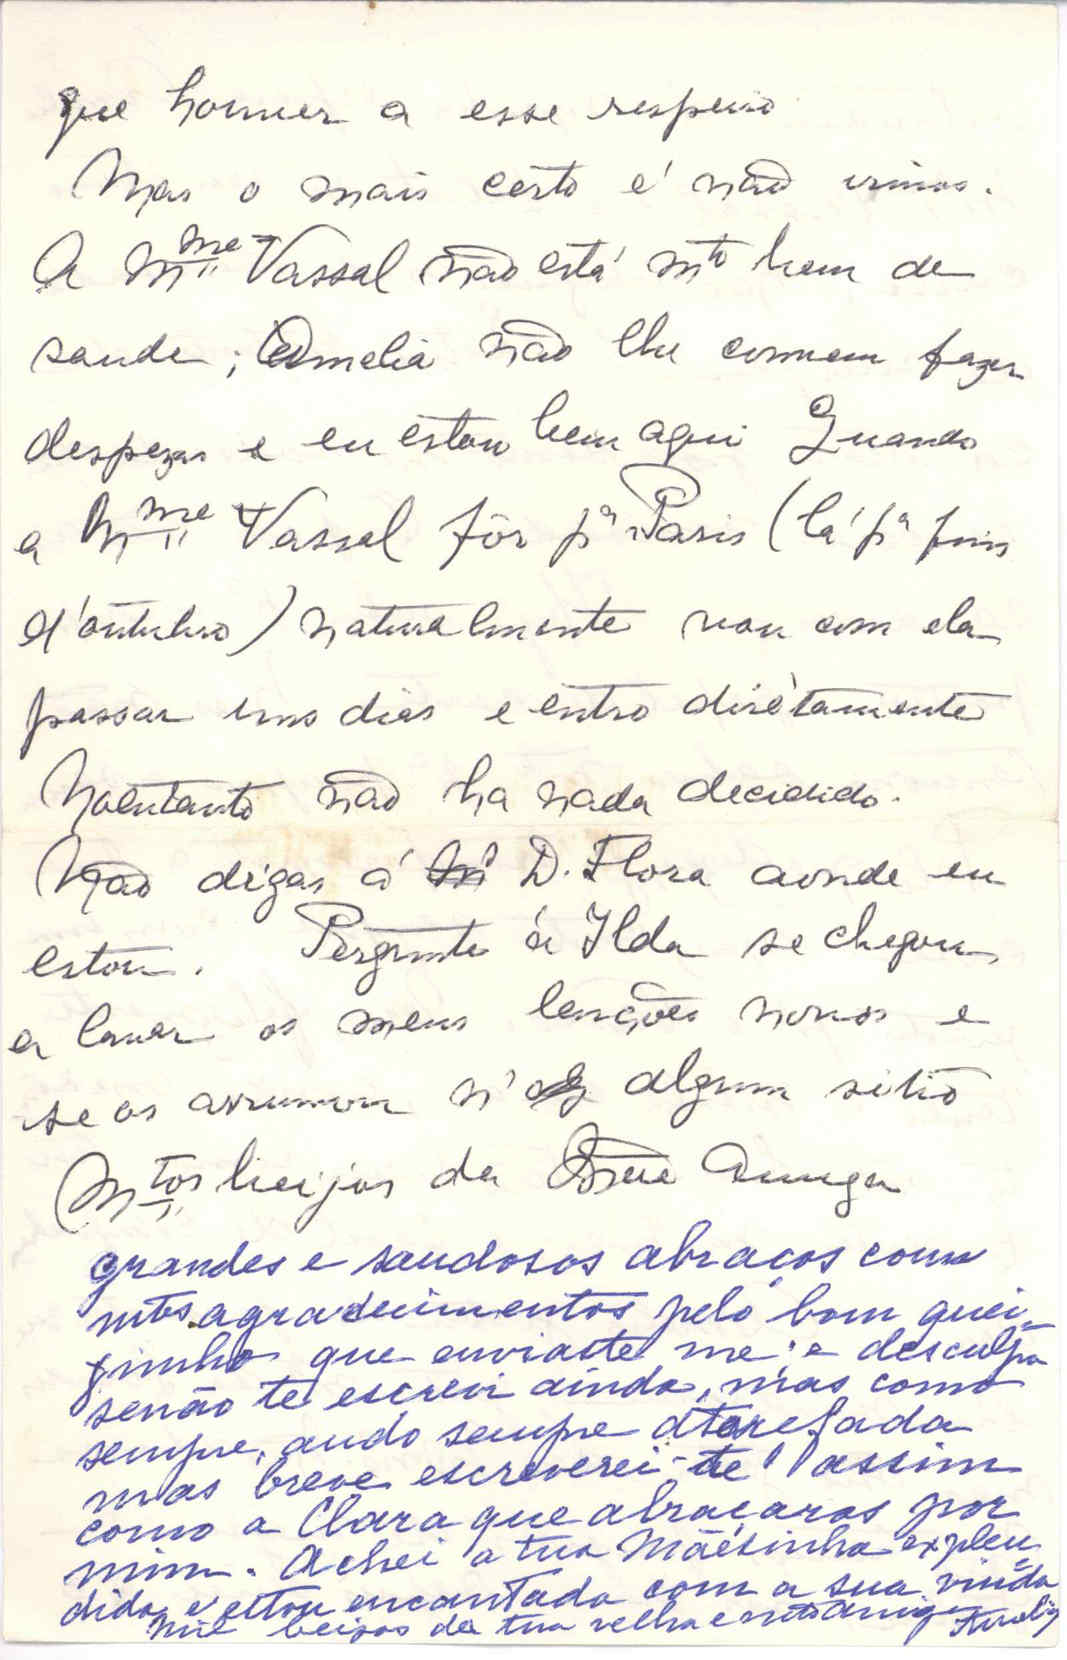 que houver a esse respeito
Mas o mais certo é não irmos.
A Mme Vassal não está mto bem de
saude; Amelia não lhe convem fazer
despezas e eu estou bem aqui Quando
a Mme Vassal fôr pa Paris (lá pa fins
d'outubro) naturalmente vou com ela
passar uns dias e entro dirètamente
Noentanto não ha nada decidido.
Não digas á D. Flora aonde eu
estou. Pergunte á Ilda se chegou
a lavar os meus lençóes novos e
se os arrumou n' algum sitio
Mtos beijos da Mãe Amiga
grandes e saudosos abraços com
mtos agradecimentos pelo bom quei-
jinho que enviaste me e desculpa
senão te escrevi ainda, mas como
sempre, ando sempre atarefada
mas breve escreverei-te assim
como a Clara que abraçaras por
mim. Achei a tua Mãesinha explen
dida e estou encantada com a sua vinda
Mil beijos da tua velha e mto amiga